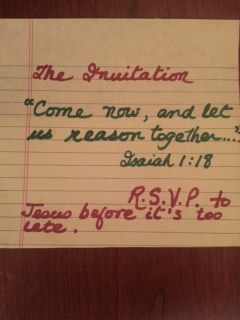 The Invitation
"Come now, and let
us reason together..."
Isaiah 1:18
R.S.V.P. to
Jesus before it's too
late.